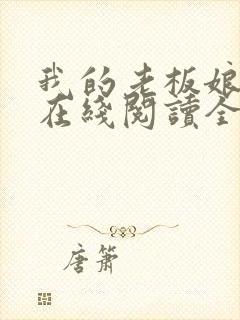 我的老板娘
在綫閱讀全
唐簫